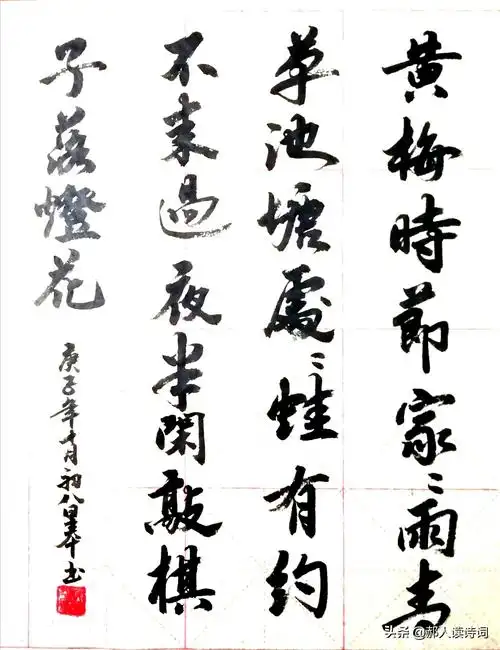 黄梅時節家〻雨青
草池塘處〻蛙有約
不来過夜半閑敲棋
子落燈花
庚子年十月初八书
头条 @郝人读诗词